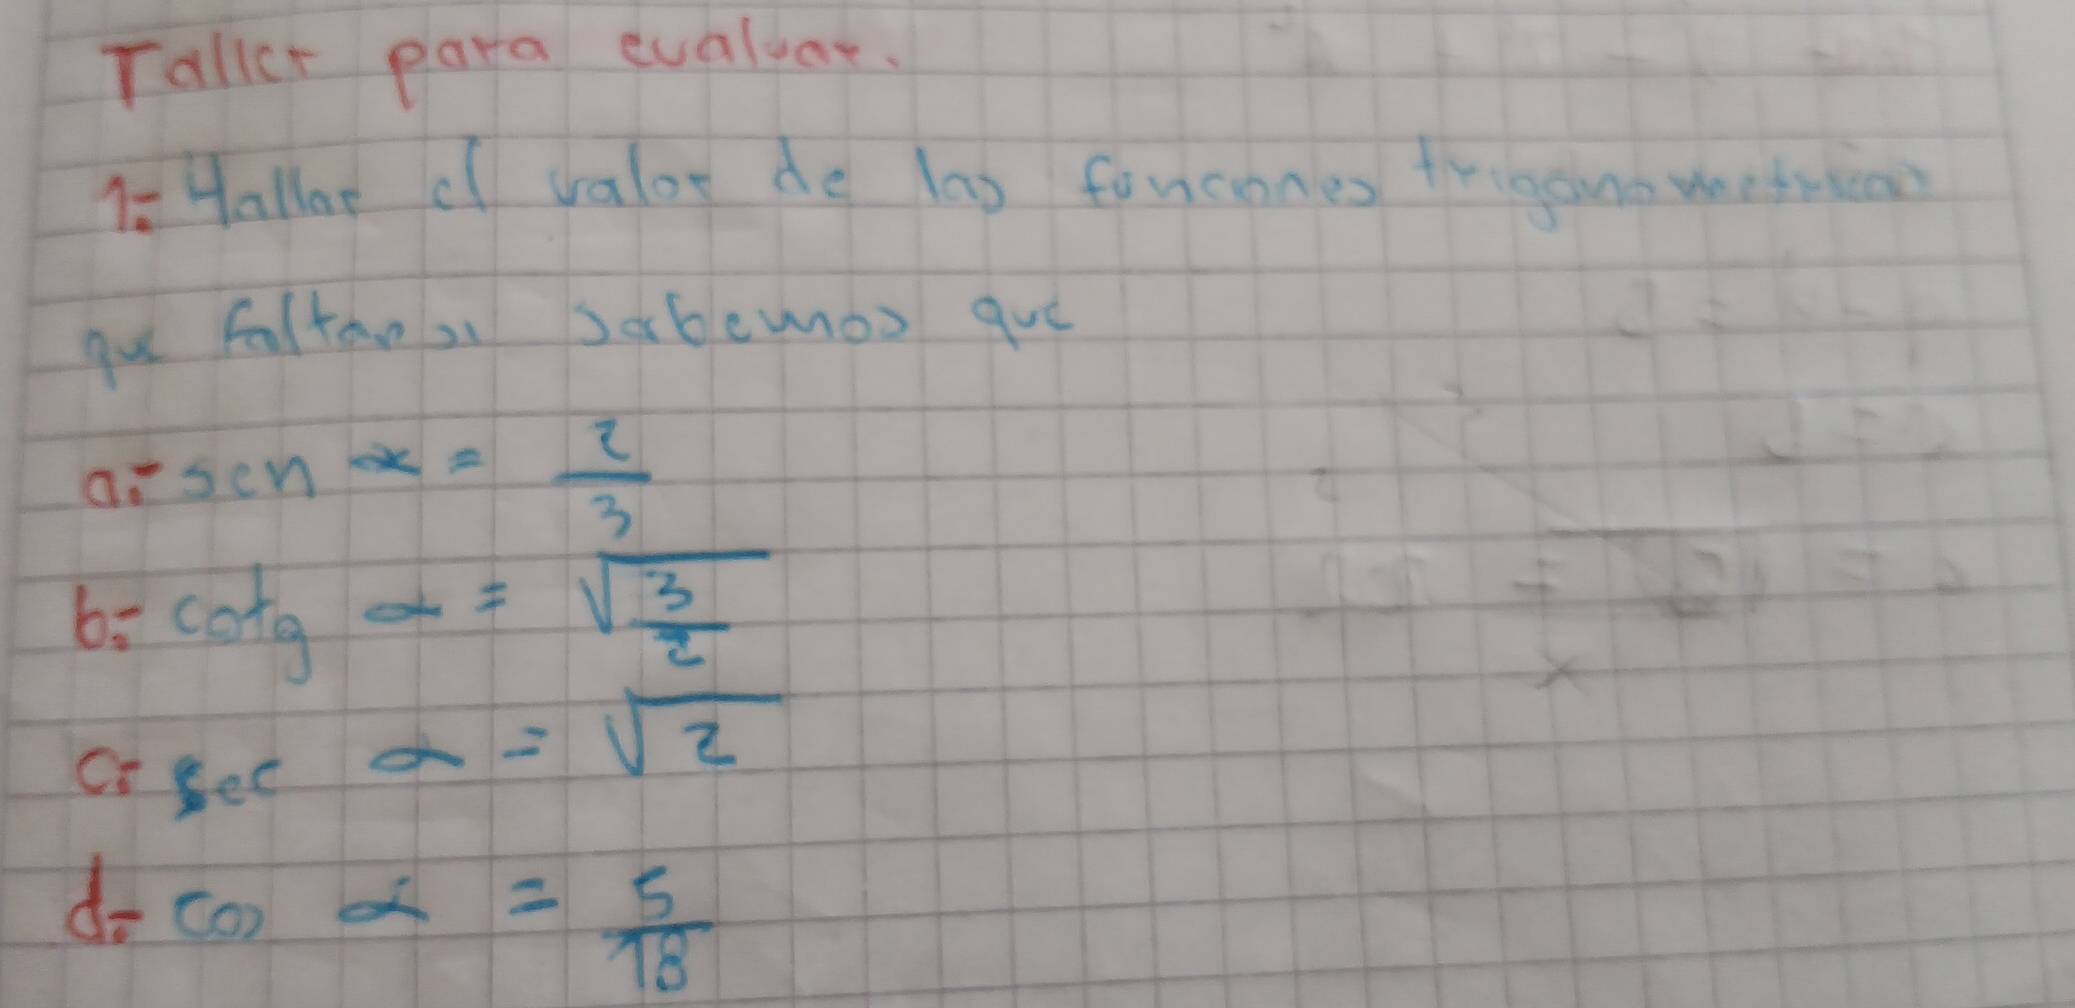 Taller para evaluar.
1.- Hallar el valor de las funciones trigonometricas
que faltan si sabemos que
a.- sen α = 2/3
b.- cotg α = √(3/2)
c.- sec α = √2
d.- cos α = 5/18